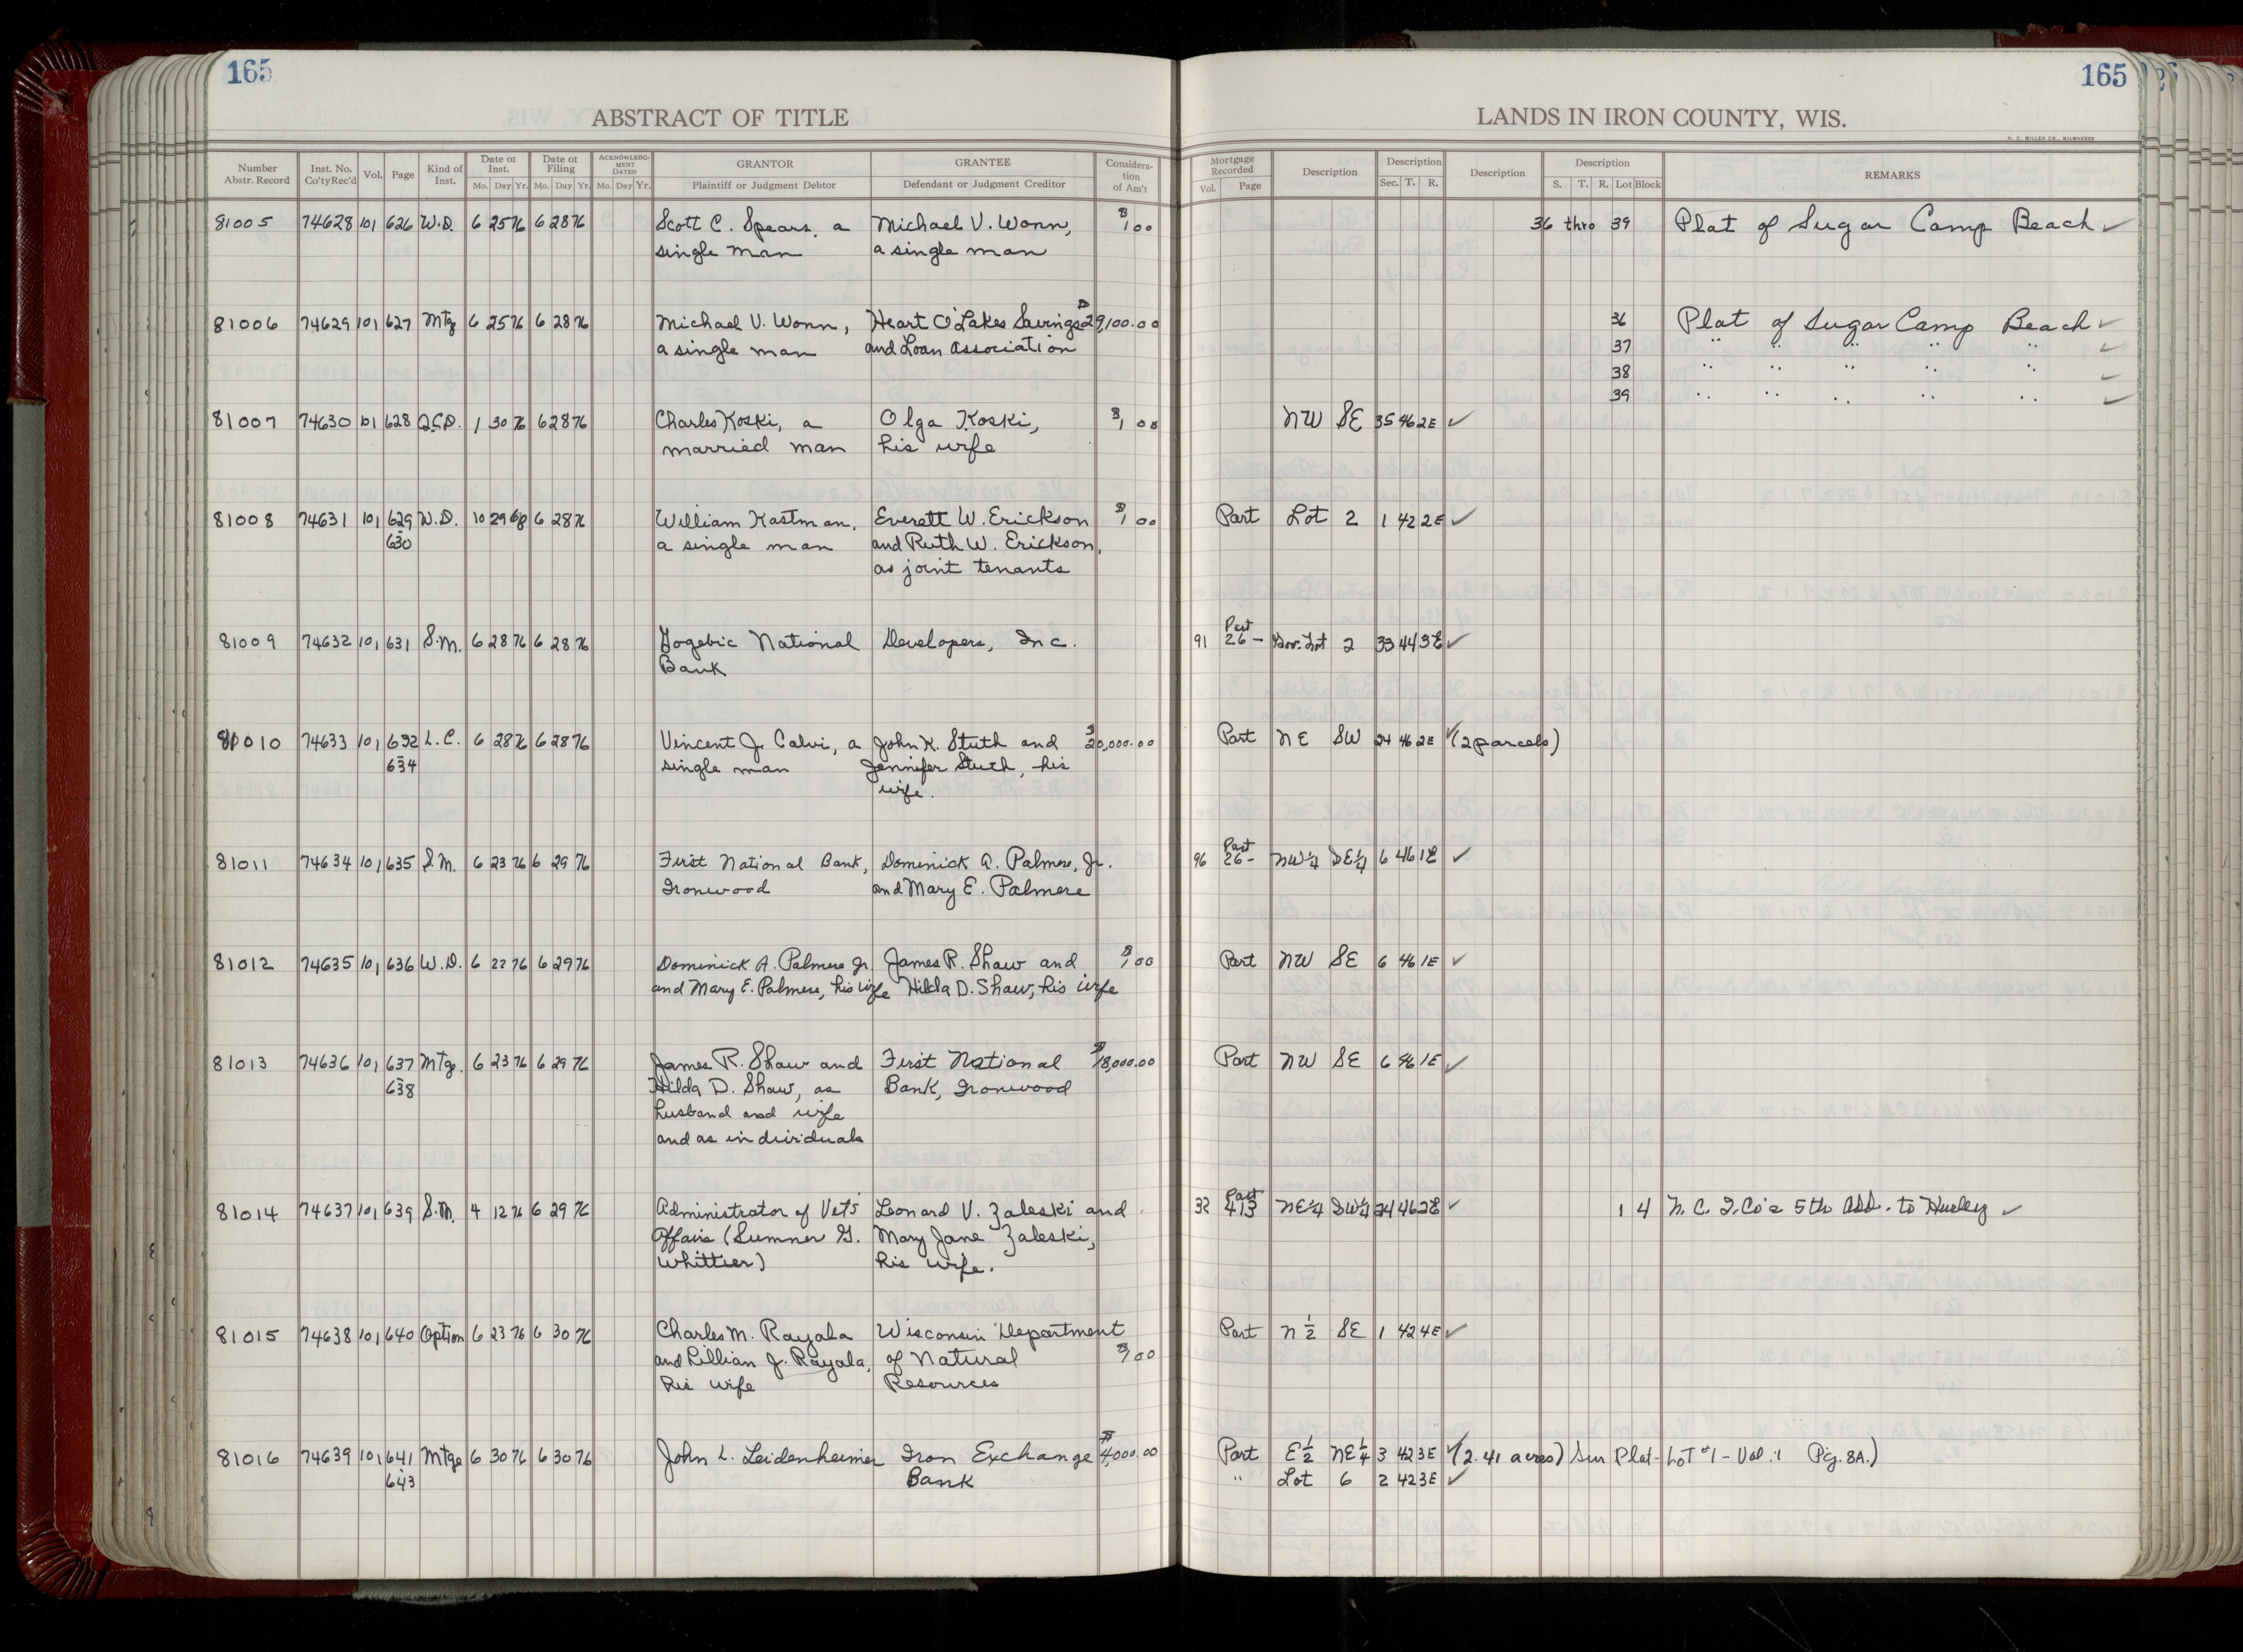 165
165
ABSTRACT OF TITLE
LANDS IN IRON COUNTY, WIS.
H. C. MILLER CO., MILWAUKEE
Number Abstr. Record Inst. No. Co'ty Rec'd Vol. Page Kind of Inst. Date of Inst. Mo. Day Yr. Date of Filing Mo. Day Yr. ACKNOWLEDGMENT DATED Mo. Day Yr. GRANTOR Plaintiff or Judgment Debtor GRANTEE Defendant or Judgment Creditor Consideration of Am't Mortgage Recorded Vol. Page Description Description Sec. T. R. Description Description S. T. R. Lot Block REMARKS
81005 74628 101 626 W.D. 6 25 76 6 28 76 Scott C. Spears, a Michael V. Wonn, $1 00 36 thro 39 Plat of Sugar Camp Beach ✓
single man a single man
81006 74629 101 627 Mtg 6 25 76 6 28 76 Michael V. Wonn, Heart O'Lakes Savings $29,100.00 36 Plat of Sugar Camp Beach ✓
a single man and Loan Association 37 " " " " " ✓
38 " " " " " ✓
39 " " " " " ✓
81007 74630 101 628 Q.C.D. 1 30 76 6 28 76 Charles Koski, a Olga Koski, $1 00 NW SE 35 46 2E ✓
married man his wife
81008 74631 101 629 W.D. 10 29 68 6 28 76 William Kastman, Everett W. Erickson $1 00 Part Lot 2 1 42 2E ✓
- 630 a single man and Ruth W. Erickson,
as joint tenants
81009 74632 101 631 S.M. 6 28 76 6 28 76 Gogebic National Developers, Inc. 91 Part 26- Gov. Lot 2 33 44 3E ✓
Bank
81010 74633 101 632 L.C. 6 28 76 6 28 76 Vincent J. Calvi, a John K. Stuth and $20,000.00 Part NE SW 24 46 2E ✓ (2 parcels)
- 634 single man Jennifer Stuth, his
wife.
81011 74634 101 635 S.M. 6 23 76 6 29 76 First National Bank, Dominick A. Palmere, Jr. 96 Part 26- NW¼ SE¼ 6 46 1E ✓
Ironwood and Mary E. Palmere
81012 74635 101 636 W.D. 6 22 76 6 29 76 Dominick A. Palmere Jr. James R. Shaw and $1 00 Part NW SE 6 46 1E ✓
and Mary E. Palmere, his wife Hilda D. Shaw, his wife
81013 74636 101 637 Mtg. 6 23 76 6 29 76 James R. Shaw and First National $18,000.00 Part NW SE 6 46 1E ✓
- 638 Hilda D. Shaw, as Bank, Ironwood
husband and wife
and as individuals
81014 74637 101 639 S.M. 4 12 76 6 29 76 Administrator of Vet's Leonard V. Zaleski and 32 Part 413 NE¼ SW¼ 24 46 2E ✓ 1 4 N. C. I. Co's 5th Add. to Hurley ✓
Affairs (Sumner G. Mary Jane Zaleski,
Whittier) his wife.
81015 74638 101 640 Option 6 23 76 6 30 76 Charles M. Rayala Wisconsin Department Part N ½ SE 1 42 4E ✓
and Lillian J. Rayala, of Natural $1 00
his wife Resources
81016 74639 101 641 Mtge 6 30 76 6 30 76 John L. Leidenheimer Iron Exchange $4,000.00 Part E½ NE¼ 3 42 3E ✓ (2.41 acres) Sur Plat - Lot #1 - Vol. 1 Pg. 8A.)
- 643 Bank " Lot 6 2 42 3E ✓